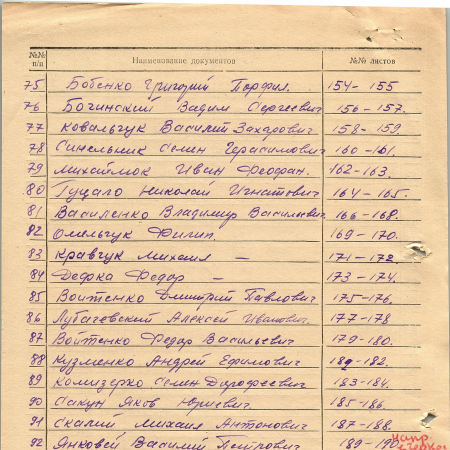 №№ п/п Наименование документов №№ листов
75 Бобенко Григорий Порфил. 154-155
76 Богинский Вадим Сергеевич 156-157.
77 Ковальчук Василий Захарович 158-159.
78 Синельник Семен Герасимович 160-161.
79 Михайлюк Иван Феофан. 162-163.
80 Гуцало Николай Игнатович 164-165.
81 Василенко Владимир Васильевич 166-168.
82 Омельчук Филип. 169-170.
83 Кравчук Михаил — 171-172.
84 Федор — 173-174.
85 Войтенко Дмитрий Павлович 175-176.
86 Лубачевский Алексей Иванович. 177-178
87 Войтенко Федор Васильевич 179-180.
88 Кузменко Андрей Ефимович 182.
89 Комизерко Семен Дорофеевич 183-184.
90 Сакун Яков Юриевич. 185-186.
91 Скалий Михаил Антонович 187-188.
92 Янковей Василий Петрович 189-190